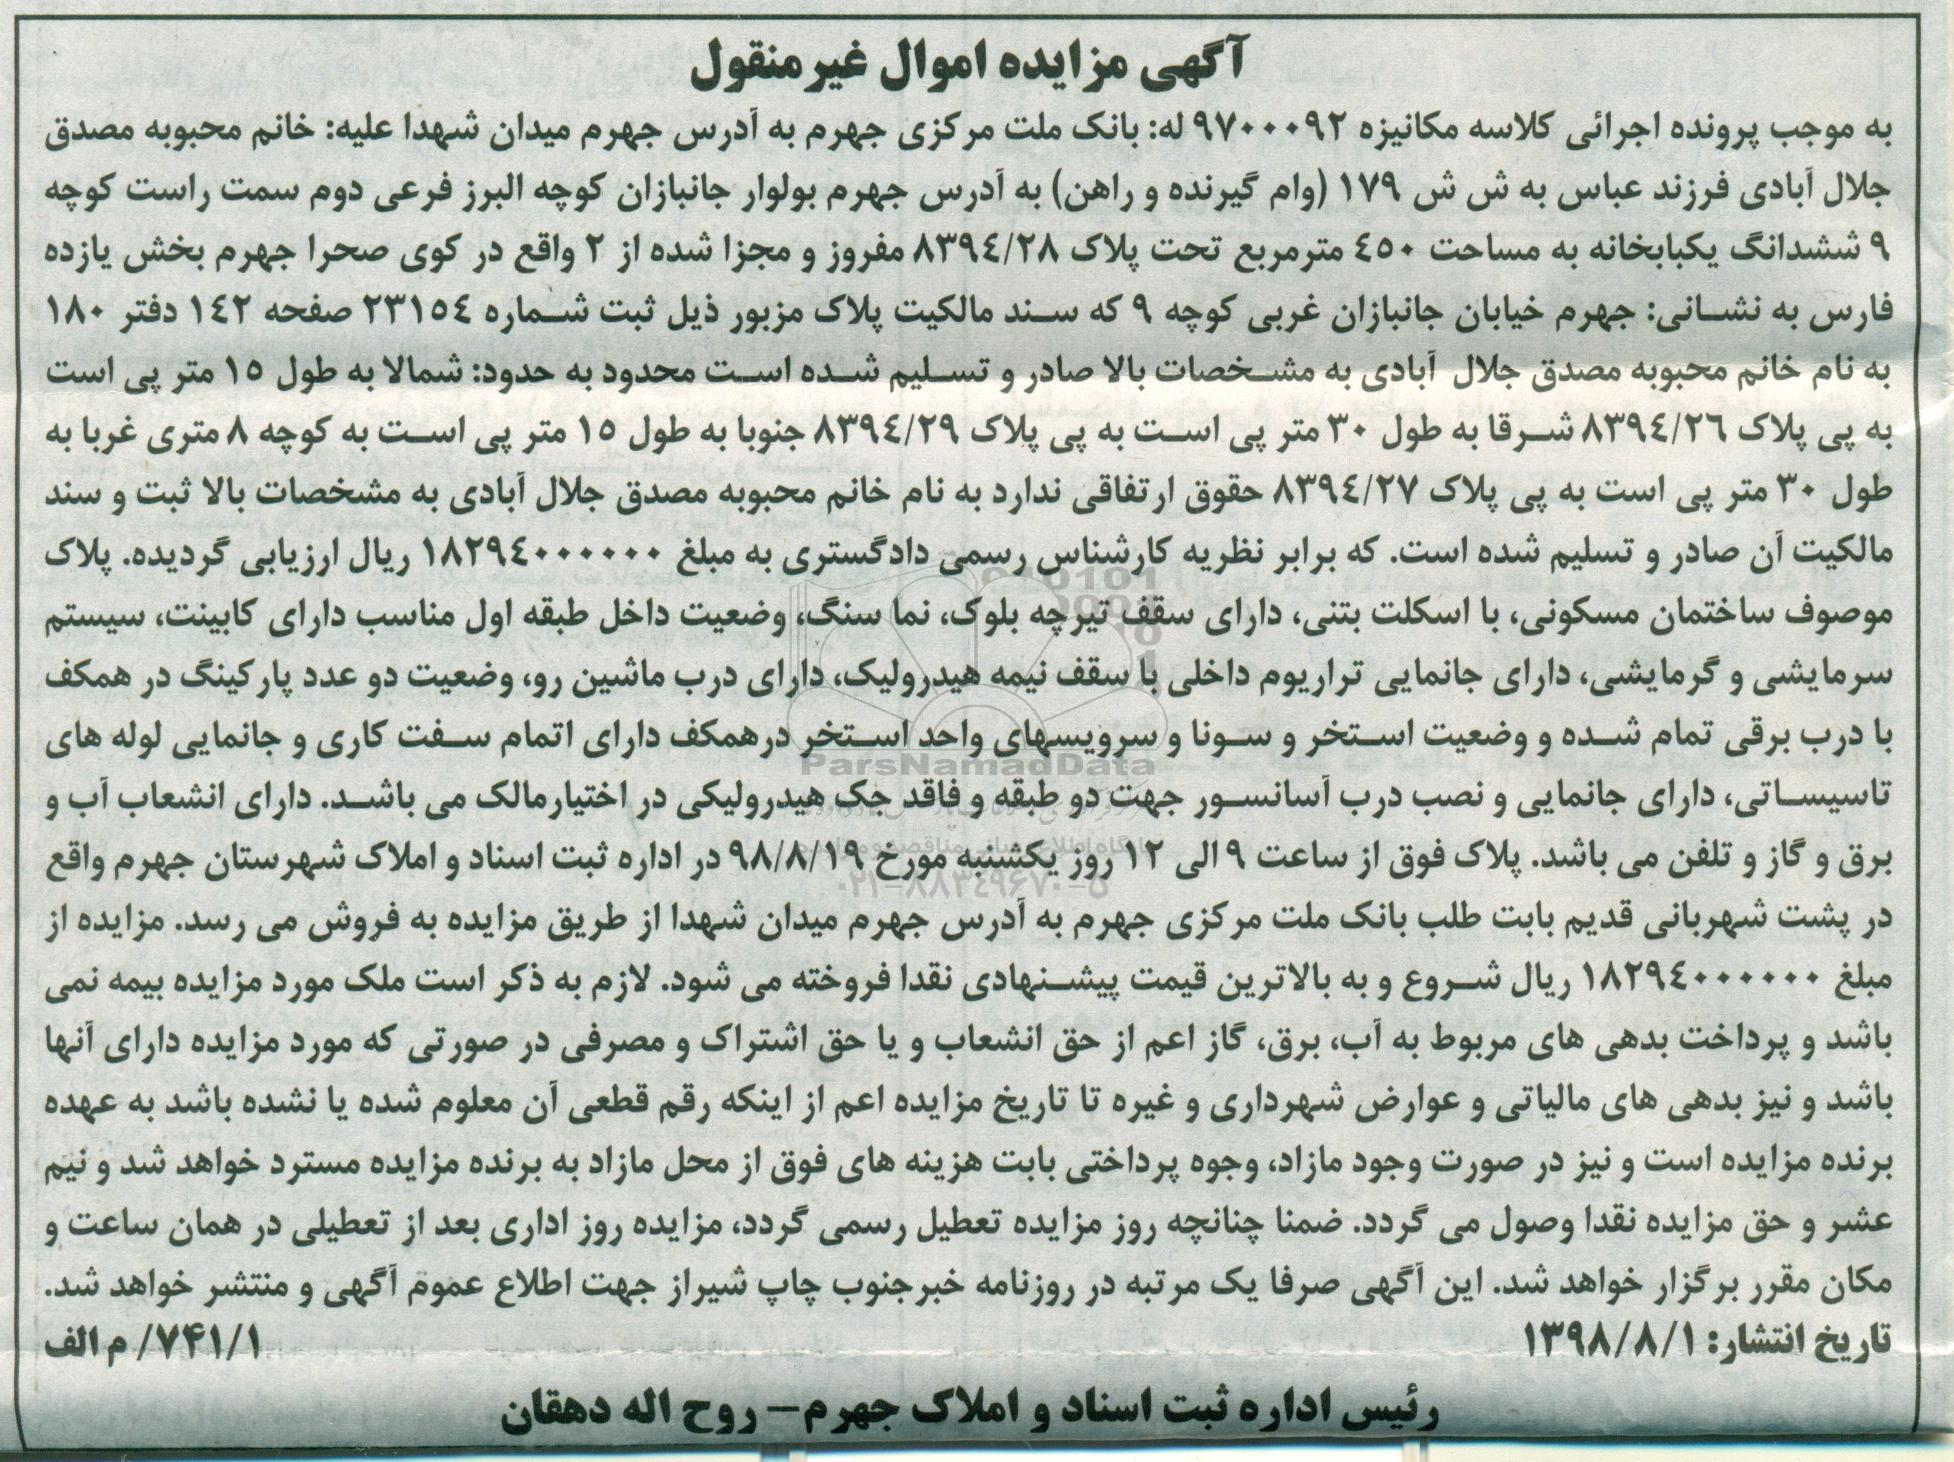 آگهی مزایده اموال غیرمنقول
به موجب پرونده اجرائی کلاسه مکانیزه ۹۷۰۰۰۹۲ له: بانک ملت مرکزی جهرم به آدرس جهرم میدان شهدا علیه: خانم محبوبه مصدق
جلال آبادی فرزند عباس به ش ش ۱۷۹ (وام گیرنده و راهن) به آدرس جهرم بولوار جانبازان کوچه البرز فرعی دوم سمت راست کوچه
۹ ششدانگ یکبابخانه به مساحت ۴۵۰ مترمربع تحت پلاک ۸۳۹۴/۲۸ مفروز و مجزا شده از ۲ واقع در کوی صحرا جهرم بخش یازده
فارس به نشانی: جهرم خیابان جانبازان غربی کوچه ۹ که سند مالکیت پلاک مزبور ذیل ثبت شماره ۲۳۱۵۴ صفحه ۱۴۲ دفتر ۱۸۰
به نام خانم محبوبه مصدق جلال آبادی به مشخصات بالا صادر و تسلیم شده است محدود به حدود: شمالا به طول ۱۵ متر پی است
به پی پلاک ۸۳۹۴/۲۶ شرقا به طول ۳۰ متر پی است به پی پلاک ۸۳۹۴/۲۹ جنوبا به طول ۱۵ متر پی است به کوچه ۸ متری غربا به
طول ۳۰ متر پی است به پی پلاک ۸۳۹۴/۲۷ حقوق ارتفاقی ندارد به نام خانم محبوبه مصدق جلال آبادی به مشخصات بالا ثبت و سند
مالکیت آن صادر و تسلیم شده است. که برابر نظریه کارشناس رسمی دادگستری به مبلغ ۱۸۲۹۴۰۰۰۰۰۰ ریال ارزیابی گردیده. پلاک
موصوف ساختمان مسکونی، با اسکلت بتنی، دارای سقف تیرچه بلوک، نما سنگ، وضعیت داخل طبقه اول مناسب دارای کابینت، سیستم
سرمایشی و گرمایشی، دارای جانمایی تراریوم داخلی با سقف نیمه هیدرولیک، دارای درب ماشین رو، وضعیت دو عدد پارکینگ در همکف
با درب برقی تمام شده و وضعیت استخر و سونا و سرویسهای واحد استخر درهمکف دارای اتمام سفت کاری و جانمایی لوله های
تاسیساتی، دارای جانمایی و نصب درب آسانسور جهت دو طبقه و فاقد جک هیدرولیکی در اختیارمالک می باشد. دارای انشعاب آب و
برق و گاز و تلفن می باشد. پلاک فوق از ساعت ۹ الی ۱۲ روز یکشنبه مورخ ۹۸/۸/۱۹ در اداره ثبت اسناد و املاک شهرستان جهرم واقع
در پشت شهربانی قدیم بابت طلب بانک ملت مرکزی جهرم به آدرس جهرم میدان شهدا از طریق مزایده به فروش می رسد. مزایده از
مبلغ ۱۸۲۹۴۰۰۰۰۰۰ ریال شروع و به بالاترین قیمت پیشنهادی نقدا فروخته می شود. لازم به ذکر است ملک مورد مزایده بیمه نمی
باشد و پرداخت بدهی های مربوط به آب، برق، گاز اعم از حق انشعاب و یا حق اشتراک و مصرفی در صورتی که مورد مزایده دارای آنها
باشد و نیز بدهی های مالیاتی و عوارض شهرداری و غیره تا تاریخ مزایده اعم از اینکه رقم قطعی آن معلوم شده یا نشده باشد به عهده
برنده مزایده است و نیز در صورت وجود مازاد، وجوه پرداختی بابت هزینه های فوق از محل مازاد به برنده مزایده مسترد خواهد شد و نیم
عشر و حق مزایده نقدا وصول می گردد. ضمنا چنانچه روز مزایده تعطیل رسمی گردد، مزایده روز اداری بعد از تعطیلی در همان ساعت و
مکان مقرر برگزار خواهد شد. این آگهی صرفا یک مرتبه در روزنامه خبرجنوب چاپ شیراز جهت اطلاع عموم آگهی و منتشر خواهد شد.
تاریخ انتشار: ۱۳۹۸/۸/۱ ۷۴۱/۱/ م الف
رئیس اداره ثبت اسناد و املاک جهرم– روح اله دهقان
ParsNamadData
۰۲۱-۸۸۳۴۹۶۷۰-۵